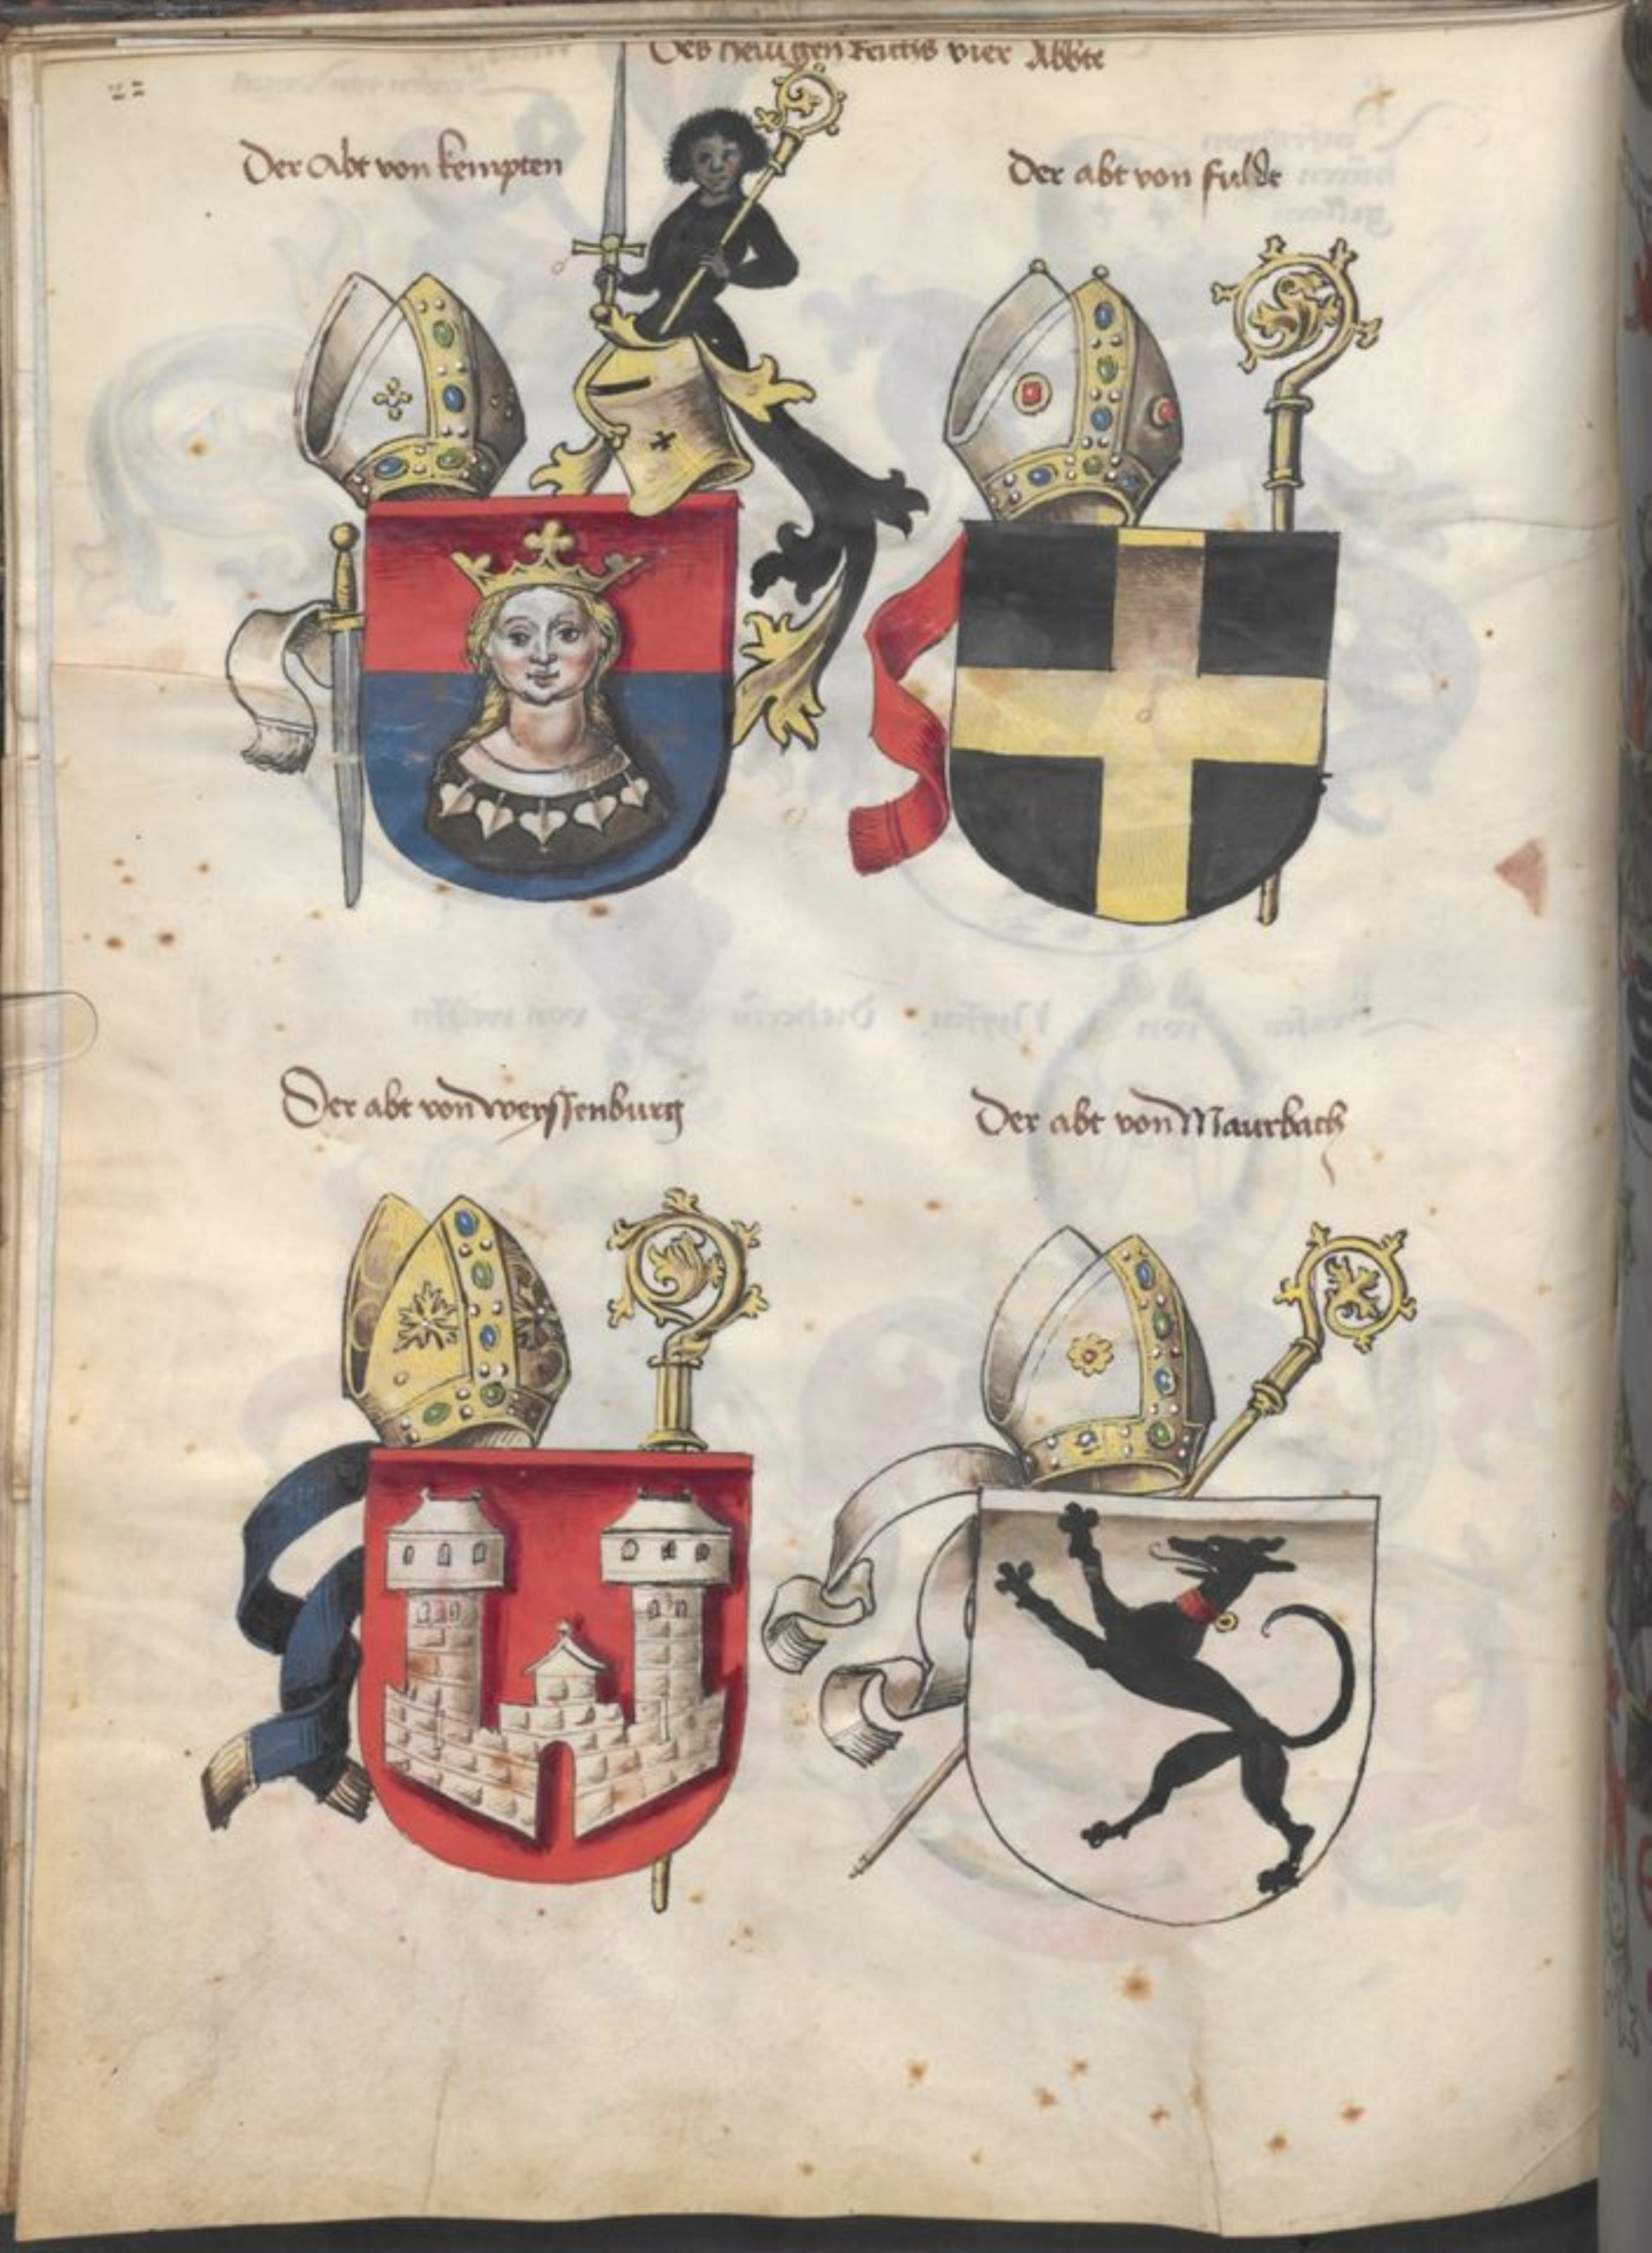 Des heiligen Reichs vier Abbte
22
Der Abt von kempten
Der abt von fulde
Der abt von weyssenburg
Der abt von Maurbach